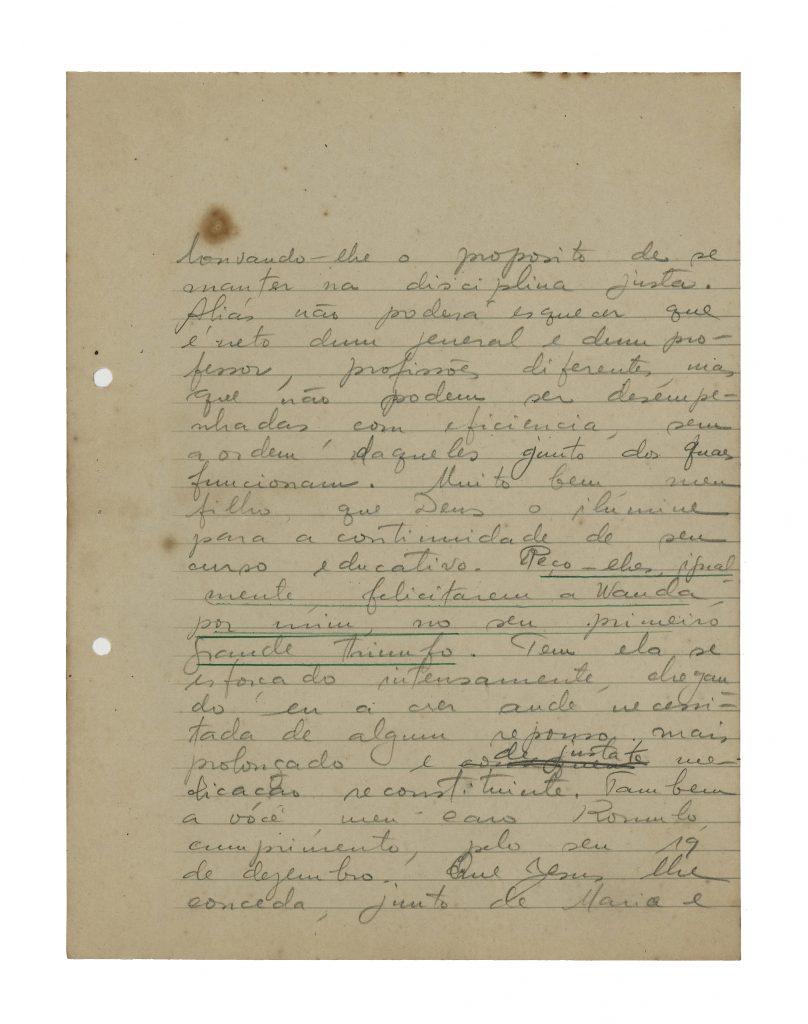 louvando-lhe o proposito de se
manter na disciplina justa.
Aliás não poderá esquecer que
é neto dum jeneral e dum pro-
fessor, profissões diferentes, mas
que não podem ser desempe-
nhadas com eficiencia, sem
a ordem daqueles junto dos quaes
funcionam. Muito bem meu
filho, que Deus o ilúmine
para a continuidade de seu
curso educativo. Peço-lhes, igual
mente felicitarem a Wanda,
por mim, no seu primeiro
grande triunfo. Tem ela se
esforçado intensamente, chegan
do eu a crer ande necessi-
tada de algum repouso mais
prolongado e de justa me-
dicação reconstituinte. Tambem
a você meu caro Romulo,
cumprimento, pelo seu 19
de dezembro. Que Jesus lhe
conceda, junto de Maria e